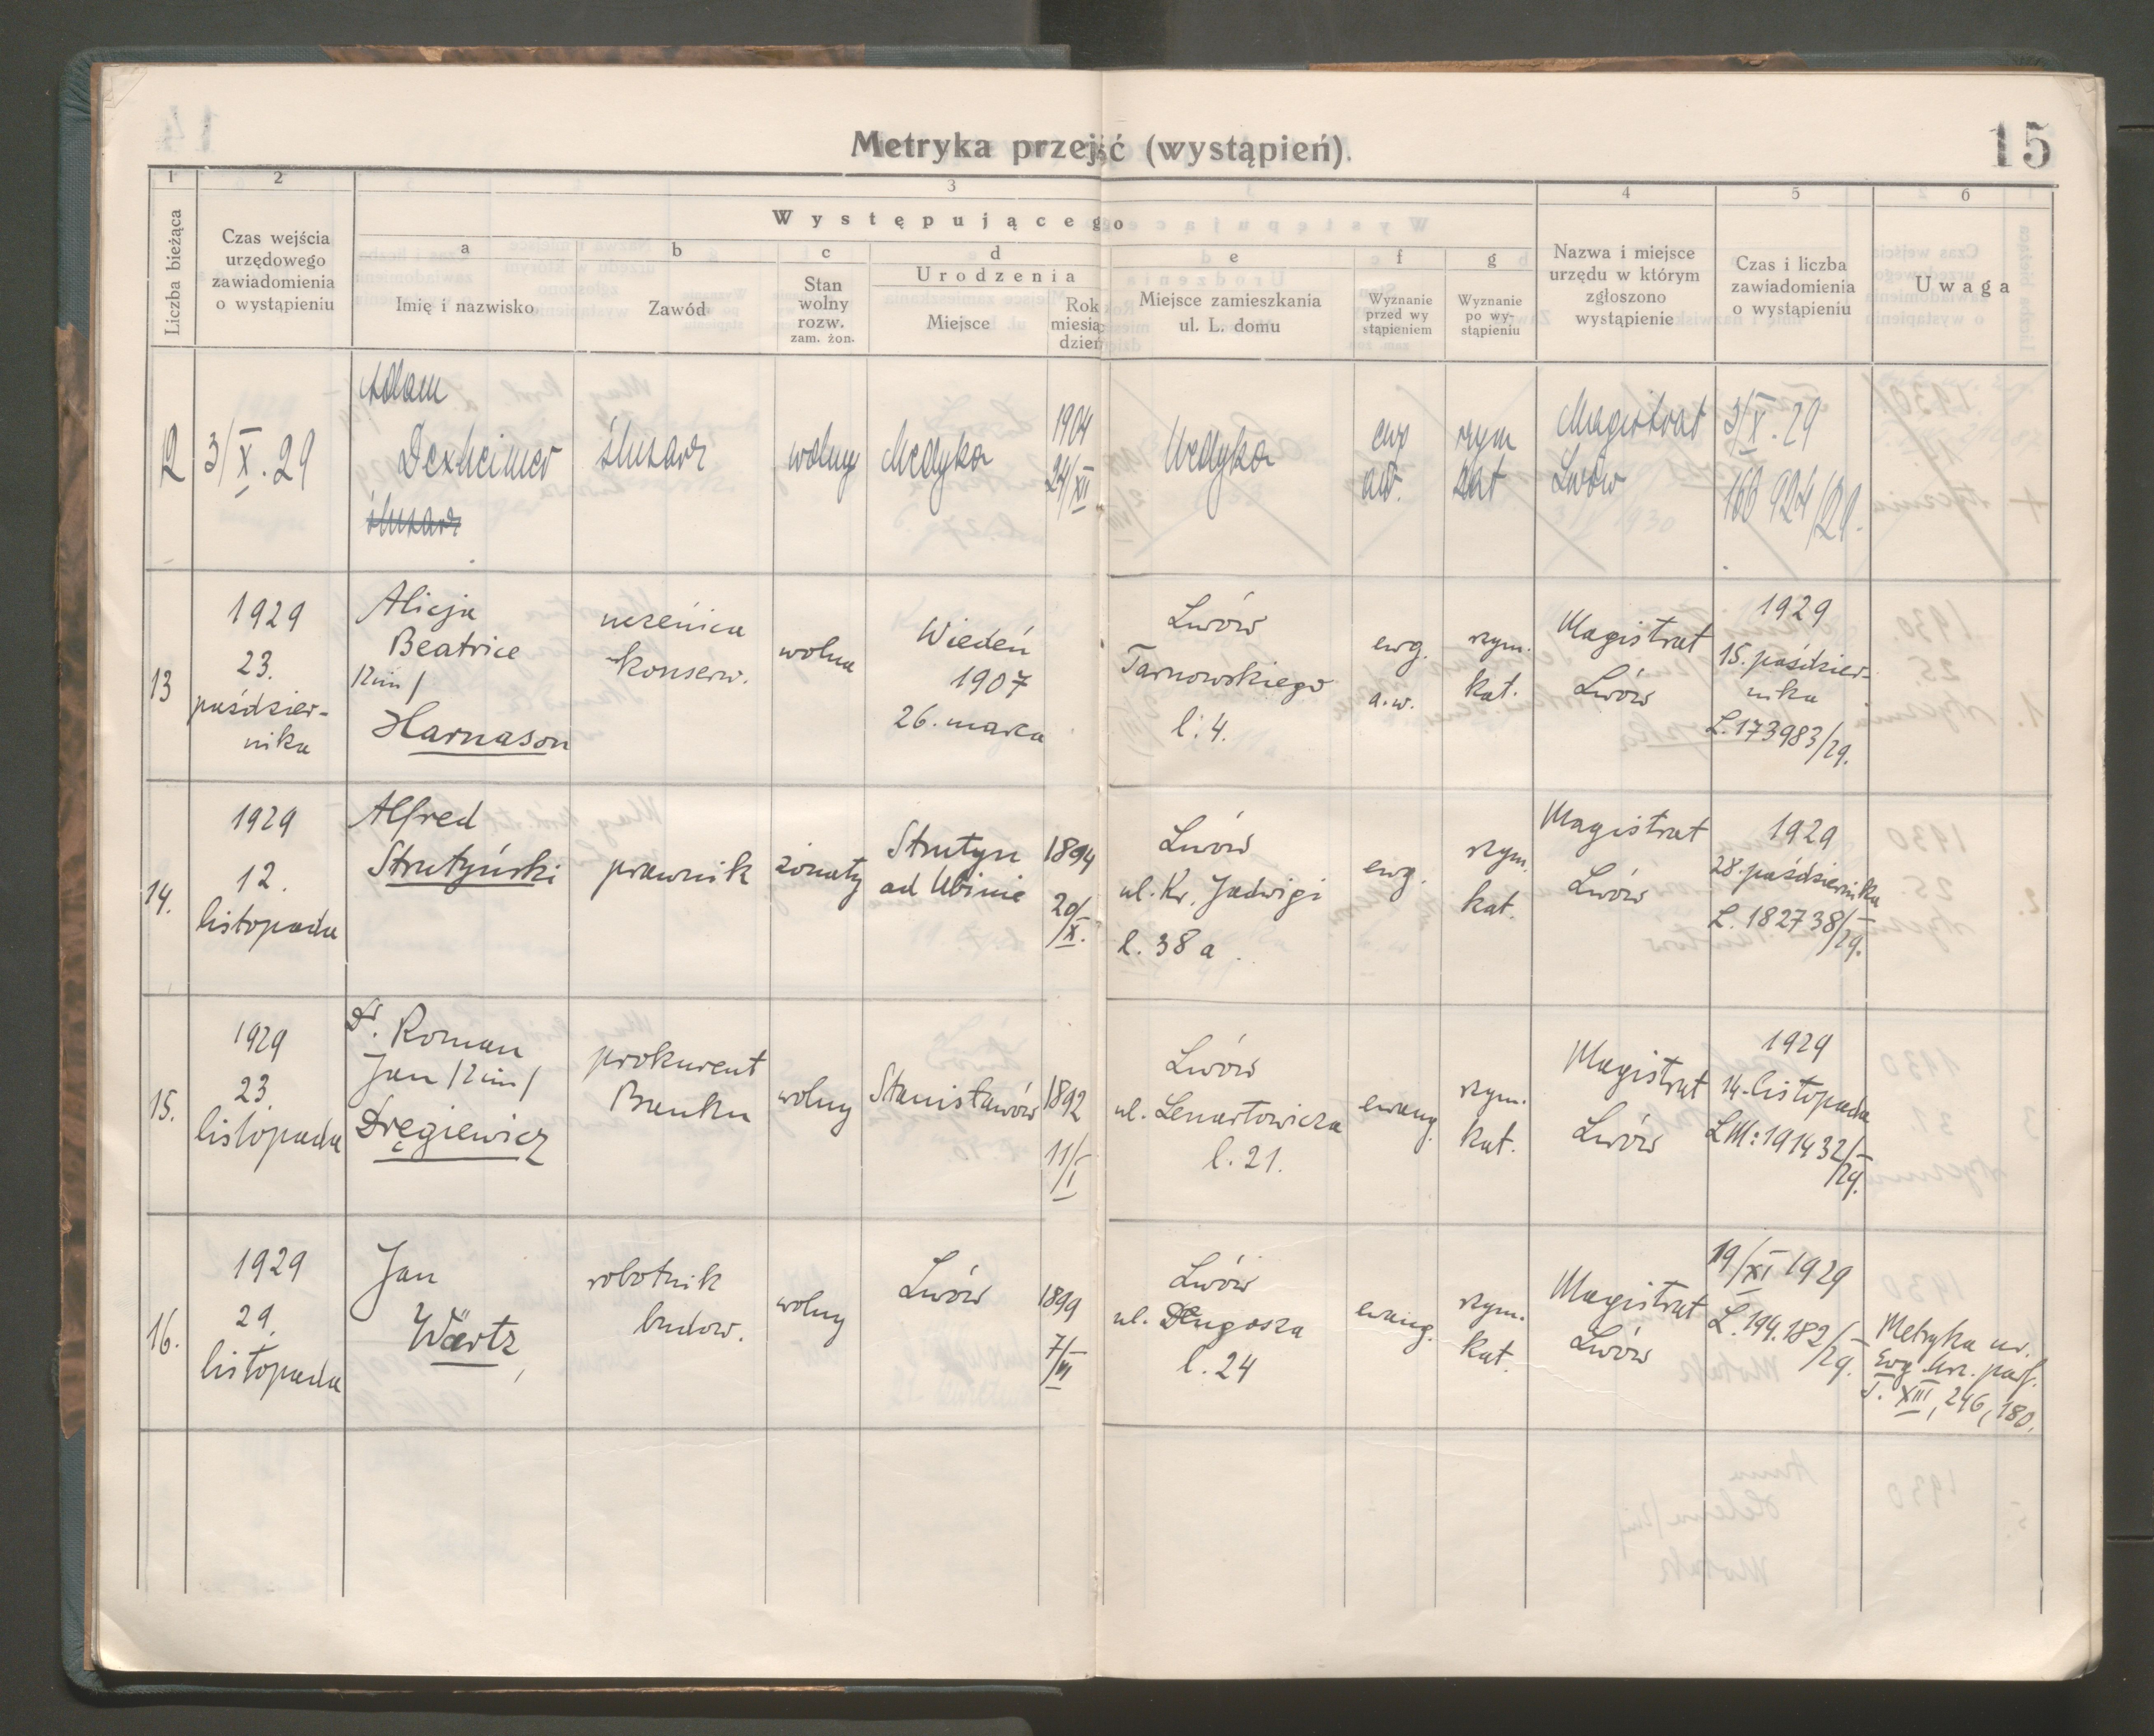 15
Metryka przejść (wystąpień).
1
2
3
4
5
6
Liczba bieżąca
Czas wejścia
urzędowego
zawiadomienia
o wystąpieniu
Występującego
a
Imię i nazwisko
b
Zawód
c
Stan
wolny
rozw.
zam. żon.
d
Urodzenia
Miejsce
Rok
miesiąc
dzień
e
Miejsce zamieszkania
ul. L. domu
f
Wyznanie
przed wy
stąpieniem
g
Wyznanie
po wy-
stąpieniu
Nazwa i miejsce
urzędu w którym
zgłoszono
wystąpienie
Czas i liczba
zawiadomienia
o wystąpieniu
Uwaga
12
3/X.29
Adam
Dexheimer
ślusarz
ślusarz
wolny
Medyka
1904
24/XI
Medyka
ewg
aw.
rzym
kat
Magistrat
Lwów
3/X.29
166 924/29.
13
1929
23.
paździer-
nika
Alicja
Beatrice
/2 im/
Harnason
uczenica
konserw.
wolna
Wiedeń
1907
26. marca
Lwów
Tarnowskiego
l: 4.
ewg.
a.w.
rzym.
kat.
Magistrat
Lwów
1929
15. paździer-
nika
L. 173983/29.
14.
1929
12.
listopada
Alfred
Strutyński
prawnik
żonaty
Strutyn
ad
1894
20/X.
Lwów
ul. Kr. Jadwigi
l. 38 a.
ewg.
rzym.
kat.
Magistrat
Lwów
1929
28. października
L. 182738/29.
15.
1929
23.
listopada
Dr. Roman
Jan /2 im/
Dręgiewicz
prokurent
Banku
wolny
Stanisławów
1892
11/I
Lwów
ul. Lenartowicza
l. 21.
ewang.
rzym.
kat.
Magistrat
Lwów
1929
14. listopada
LM: 191432/29.
16.
1929
29.
listopada
Jan
Wärtz,
robotnik
budow.
wolny
Lwów
1899
7/VI
Lwów
ul. Długosza
l. 24
ewang.
rzym.
kat.
Magistrat
Lwów
19/XI 1929
L. 194.182/29.
Metryka ur.
Ewg. par.
T. XIII, 246, 180.